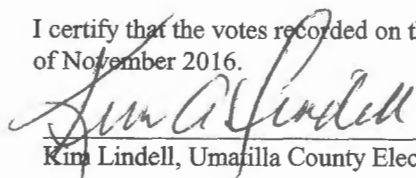 I certify that the votes recorded on t
of November 2016.
Kim A Lindell
Kim Lindell, Umatilla County Elec